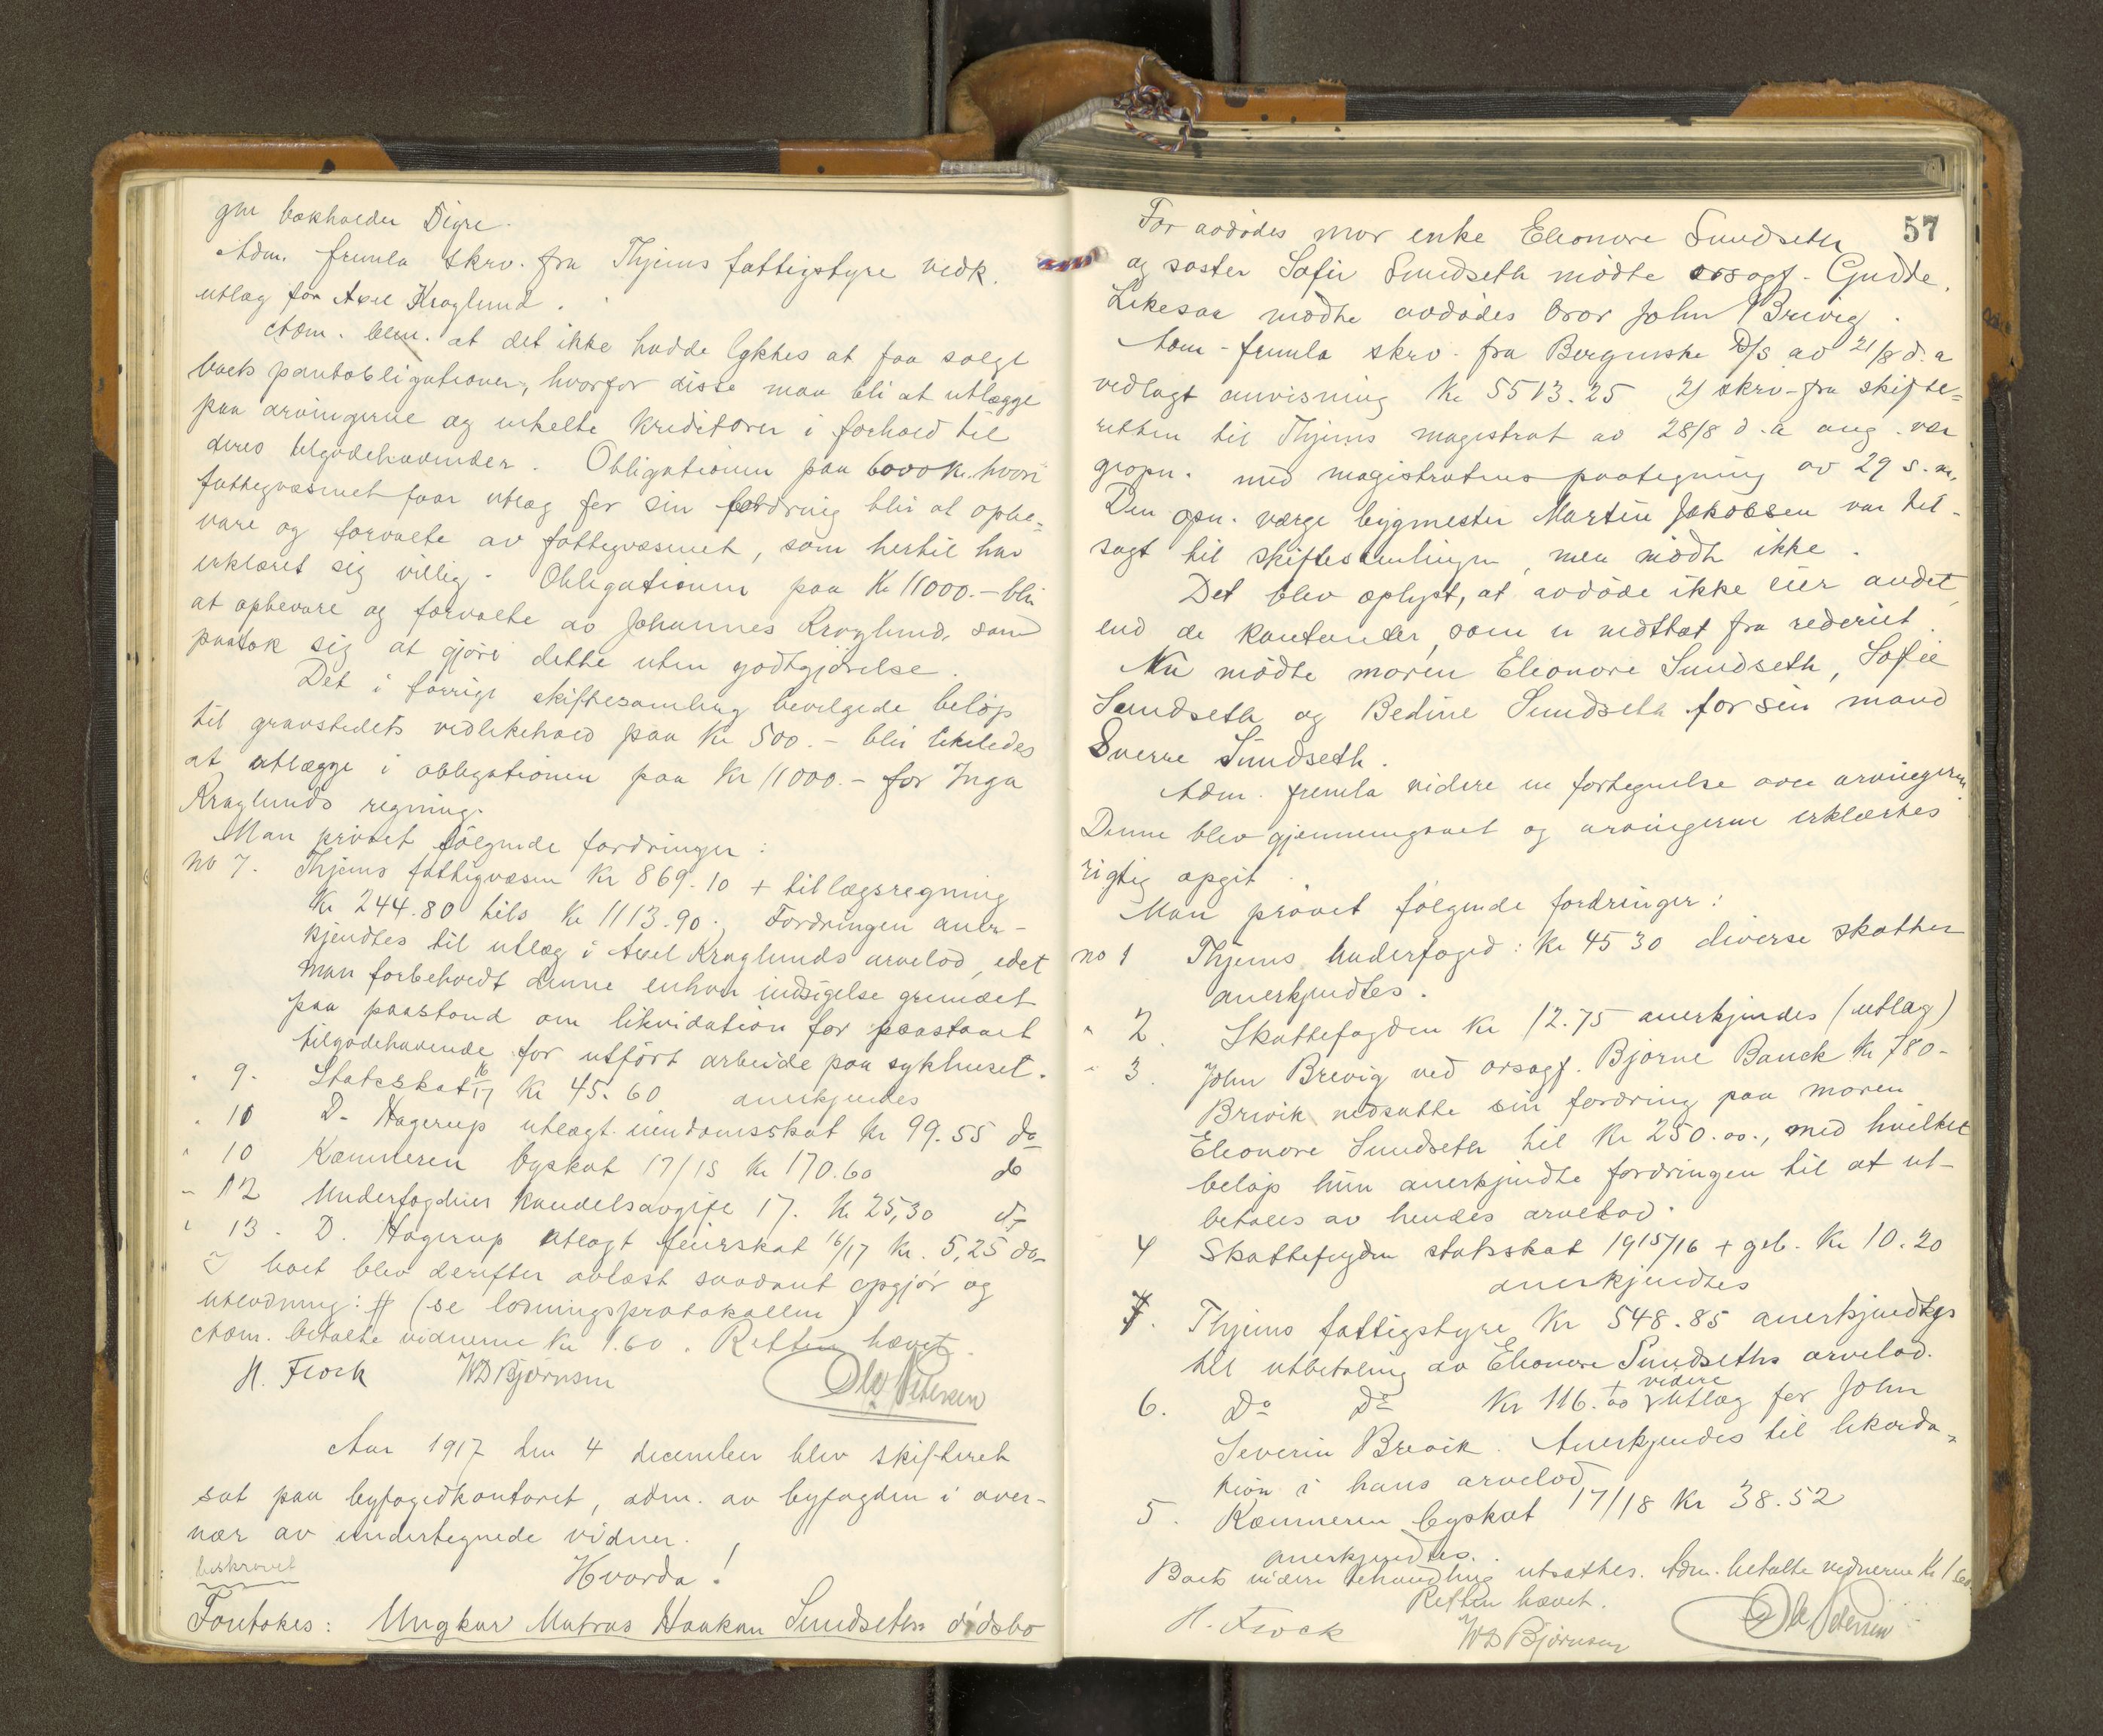 gm bokholder Digre.
Adm. fremla skrv. fra Thjems fattigstyre vedk.
utlæg for Axel Kraglund.
Adm. bem. at det ikke hadde lyktes at faa solgt
boets pantobligationer, hvorfor disse maa bli at utlægge
paa arvingerne og enkelte kreditorer i forhold til
deres tilgodehavender. Obligationen paa 6000 kr. hvori
fattigvæsenet faar utlæg for sin fordring blir at opbe=
vare og forvalte av fattigvæsenet, som hertil har
erklæret sig villig. Obligationen paa Kr 11000.- blir
at opbevare og forvalte av Johannes Kraglund, som
paatok sig at gjøre dette uten godtgjørelse.
Det i forrige skiftesamling bevilgede beløp
til gravstedets vedlikehold paa Kr 500.- blir likeledes
at utlægge i obligationen paa Kr 11000.- for Inga
Kraglunds regning.
Man prøvet følgende fordringer:
no 7. Thjems fattigvæsen Kr 869.10 + tillægsregning
Kr 244.80 tils Kr 1113.90. Fordringen aner-
kjendtes til utlæg i Axel Kraglunds arvelod, idet
man forbeholdt denne enhver indsigelse grundet
paa paastand om likvidation for paastaaet
tilgodehavende for utført arbeide paa sykhuset.
" 9. Statsskat 16/17 Kr 45.60 anerkjendes
" 10 D. Hagerup utlagt eiendomsskat kr 99.55 do
" 10 Kæmneren byskat 17/18 Kr 170.60 do
" 12 Underfogdens handelsavgift 17. Kr 25,30 do
" 13. D. Hagerup utlagt feierskat 16/17 Kr. 5,25 do
I boet blev derefter avlæst saadant opgjør og
utlodning: # (se lodningsprotokollen)
Adm. betalte vidnerne Kr 1.60. Retten hævet.
H. Flock WD Bjørnsen Ole Petersen
Aar 1917 den 4 december blev skifteret
sat paa byfogedkontoret, adm. av byfogden i over-
vær av undertegnede vidner.
beskrevet
Hvorda!
Foretokes: Ungkar Matros Haakon Sundseths dødsbo
57
For avdødes mor enke Eleonore Sundseth
og søster Sofie Sundseth mødte orsagf. Gudde.
Likesaa mødte avdødes bror John Brevig.
Adm. fremla skrv. fra Bergenske D/S av 21/8 d.a
vedlagt anvisning Kr 5513.25 2) skrv. fra skifte=
retten til Thjems magistrat av 28/8 d.a ang. vær
geopn. med magistratens paategning av 29 s.m.
Den opn. værge bygmester Martin Jakobsen var til-
sagt til skiftesamlingen, men mødte ikke.
Det blev oplyst, at avdøde ikke eier andet,
end de kontanter, som er mottat fra rederiet.
Nu mødte moren Eleonore Sundseth, Sofie
Sundseth og Bedine Sundseth for sin mand
Sverre Sundseth.
Adm. fremla videre en fortegnelse over arvingerne
Denne blev gjennemgaaet og arvingerne erklærtes
rigtig opgit.
Man prøvet følgende fordringer:
no 1 Thjems Underfoged: Kr 45 30 diverse skatter
anerkjendtes.
" 2. Skattefogden Kr 12.75 anerkjendes (utlæg)
" 3. John Brevig ved orsagf. Bjarne Bauck Kr 780-
Brevik nedsatte sin fordring paa moren
Eleonore Sundseth til Kr 250.oo., med hvilket
beløp hun anerkjendte fordringen til at ut-
betales av hendes arvelod.
4 Skattefogden statsskat 1915/16 + geb. Kr 10.20
anerkjendtes
7. Thjems fattigstyre Kr 548.85 anerkjendtes
til utbetaling av Eleonore Sundseths arvelod.
6. Do Do Kr 116.oo + videre utlæg for John
Severin Brevik. Anerkjendes til likvida=
tion i hans arvelod
5. Kæmneren byskat 17/18 Kr 38.52
anerkjendtes.
Boets videre behandling utsattes. Adm. betalte vidnerne Kr 1 60.
Retten hævet.
H. Flock WD Bjørnsen Ole Petersen